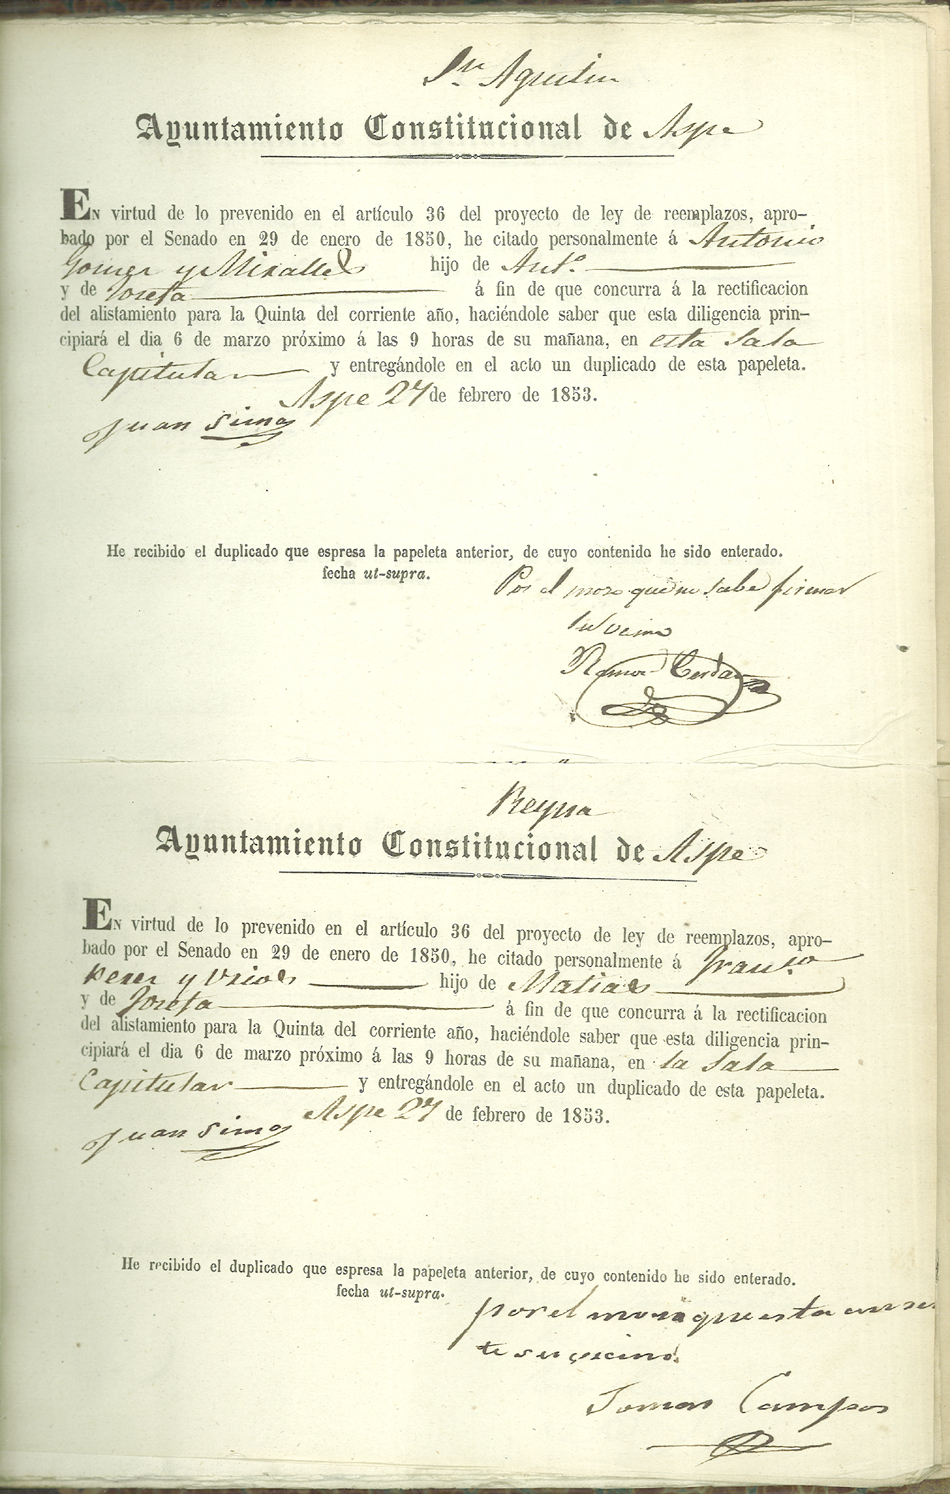 Sn Agustin
Ayuntamiento Constitucional de Aspe
EN virtud de lo prevenido en el artículo 36 del proyecto de ley de reemplazos, apro-
bado por el Senado en 29 de enero de 1850, he citado personalmente á Antonio
Gomez y Miralles hijo de Anto.
y de Josefa á fin de que concurra á la rectificacion
del alistamiento para la Quinta del corriente año, haciéndole saber que esta diligencia prin-
cipiará el dia 6 de marzo próximo á las 9 horas de su mañana, en esta Sala
Capitular y entregándole en el acto un duplicado de esta papeleta.
Aspe 27 de febrero de 1853.
Juan Simo
He recibido el duplicado que espresa la papeleta anterior, de cuyo contenido he sido enterado.
fecha ut-supra.
Por el moso que no sabe firmar
su vecino
Ramon Cerdan
Reyna
Ayuntamiento Constitucional de Aspe
EN virtud de lo prevenido en el artículo 36 del proyecto de ley de reemplazos, apro-
bado por el Senado en 29 de enero de 1850, he citado personalmente á Franco
Perez y Urios hijo de Matias
y de Josefa á fin de que concurra á la rectificacion
del alistamiento para la Quinta del corriente año, haciéndole saber que esta diligencia prin-
cipiará el dia 6 de marzo próximo á las 9 horas de su mañana, en la Sala
Capitular y entregándole en el acto un duplicado de esta papeleta.
Aspe 27 de febrero de 1853.
Juan Simo
He recibido el duplicado que espresa la papeleta anterior, de cuyo contenido he sido enterado.
fecha ut-supra.
por el moso que esta ausen
te su vecino
Tomas Campos